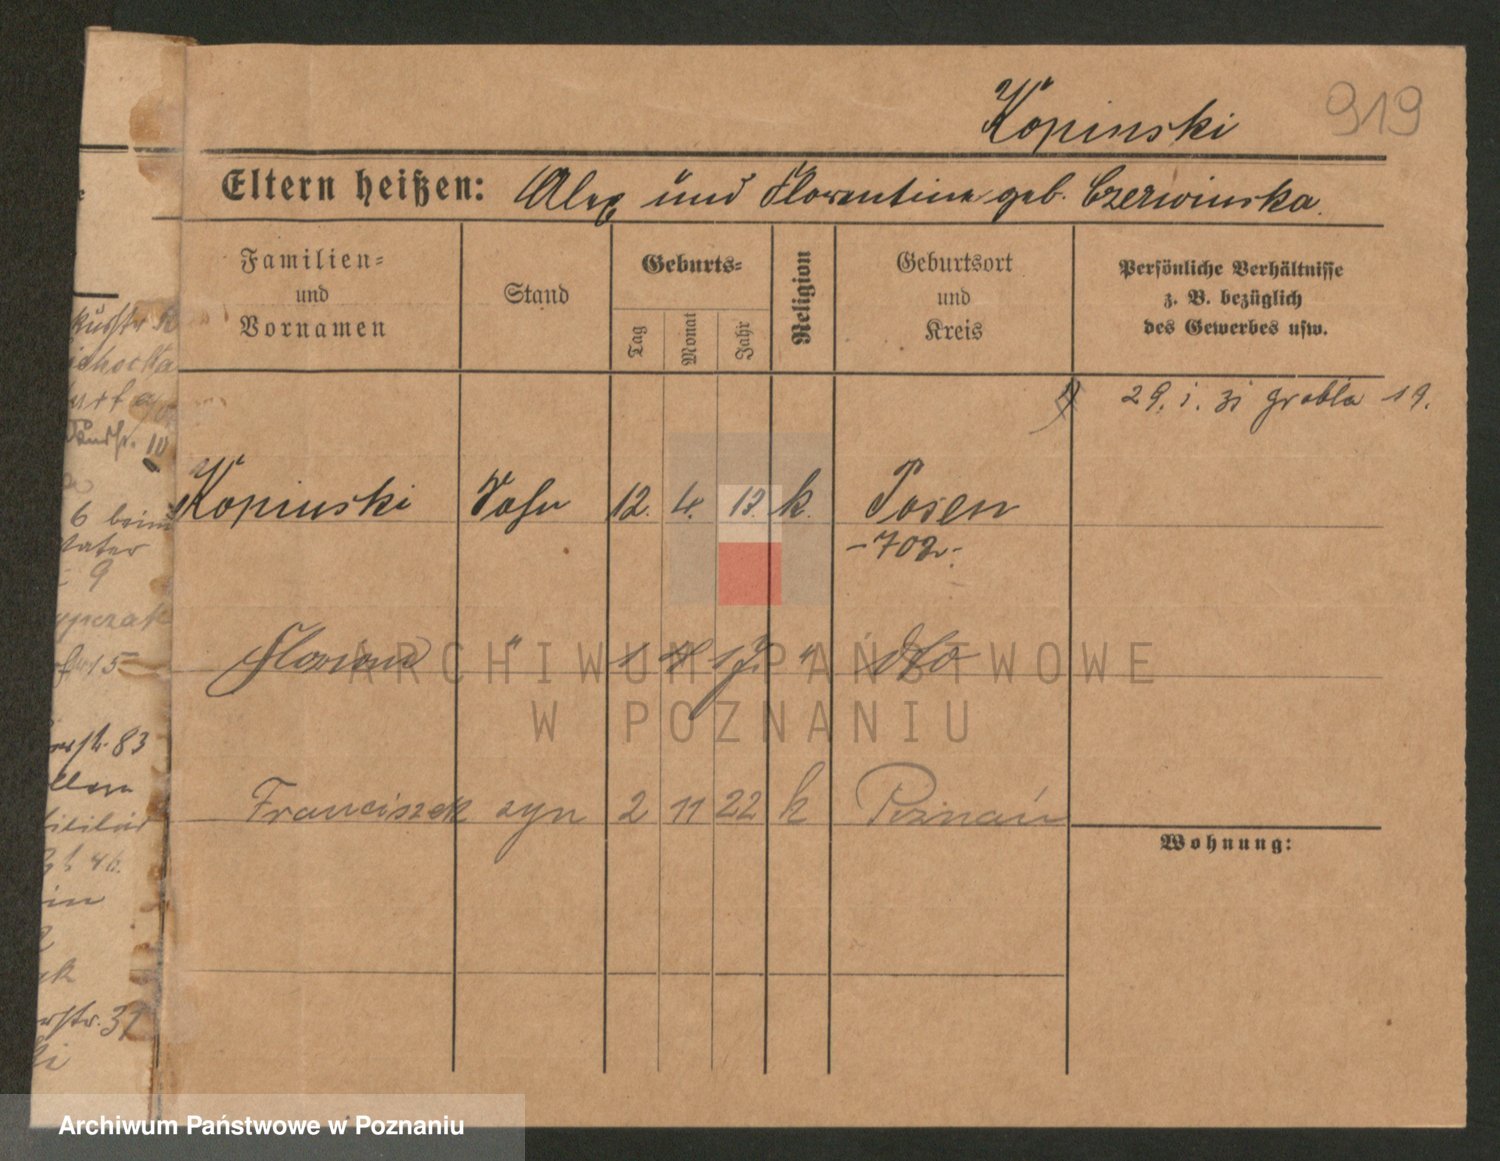 Kopinski 919
Eltern heißen: Alex und Florentine geb. Czerwinska.
Familien-
und
Vornamen
Stand
Geburts-
Tag
Monat
Jahr
Religion
Geburtsort
und
Kreis
Persönliche Verhältnisse
z. B. bezüglich
des Gewerbes usw.
29. i. 31 grobla 19.
Kopinski Sohn 12. 4. 13. k. Posen
Florian " 1 4 17. " dto
Franciszek syn 2 11 22 k Poznań
Wohnung:
6 beim
Vater
9
15
str. 83
46.
str. 37
ARCHIWUM PAŃSTWOWE
W POZNANIU
Archiwum Państwowe w Poznaniu